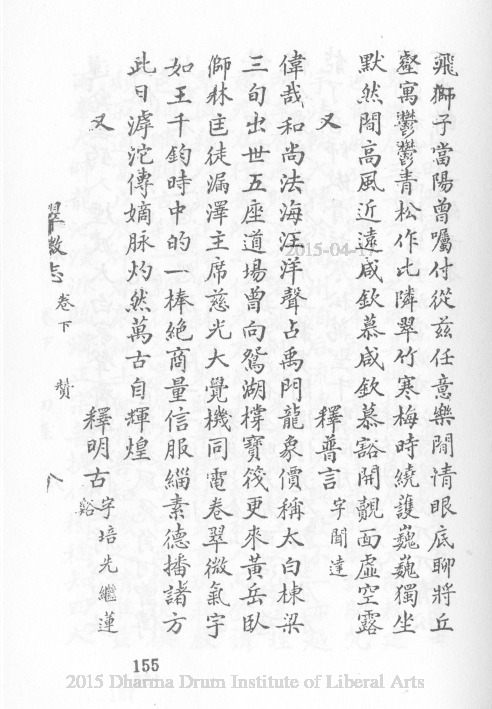 飛獅子當陽曾囑付從茲任意樂閒情眼底聊將丘
壑寓鬱鬱青松作比隣翠竹寒梅時繞護巍巍獨坐
默然間高風近遠咸欽慕咸欽慕豁開覿面虛空露
又
釋普言 字聞達
偉哉和尚法海汪洋聲占禹門龍象價稱太白棟梁
三旬出世五座道場曾向鴛湖撐寶筏更來黃岳臥
獅林匡徒漏澤主席慈光大覺機同電卷翠微氣宇
如王千鈞時中的一棒絕商量信服緇素德播諸方
此日滹沱傳嫡脉灼然萬古自輝煌
又
釋明古 字培先繼蓮谿
卷下
贊
八
155
2015-04-17
2015 Dharma Drum Institute of Liberal Arts